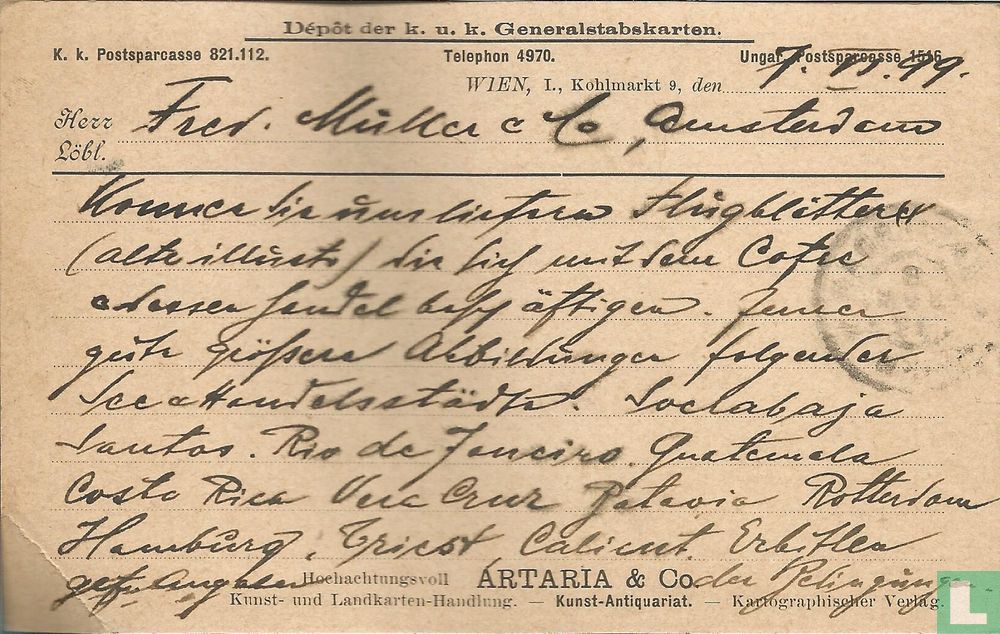 Dépôt der k. u. k. Generalstabskarten.
K. k. Postsparcasse 821.112. Telephon 4970. Ungar. Postsparcasse 1516.
WIEN, I., Kohlmarkt 9, den 7. 99.
Herr Fred. Muller & Co, Amsterdam
Löbl.
Können Sie uns liefern Flugblätter
(alte illustr) die sich mit dem Cafee
& dessen Handel beschäftigen. Ferner
gute größere Abbildungen folgender
See & Handelsstädte. Soerabaja
Santos. Rio de Janeiro. Guatemala
Costa Rica Vera Cruz Batavia Rotterdam
Hamburg. Triest Calicut. Erbitten
gefl. Angaben der Bedingungen
Hochachtungsvoll ARTARIA & Co.
Kunst- und Landkarten-Handlung. — Kunst-Antiquariat. — Kartographischer Verlag.
L